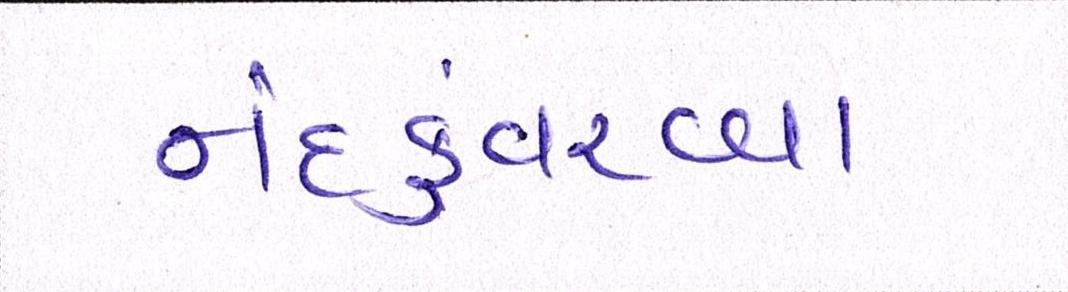 નંદકુંવરબા